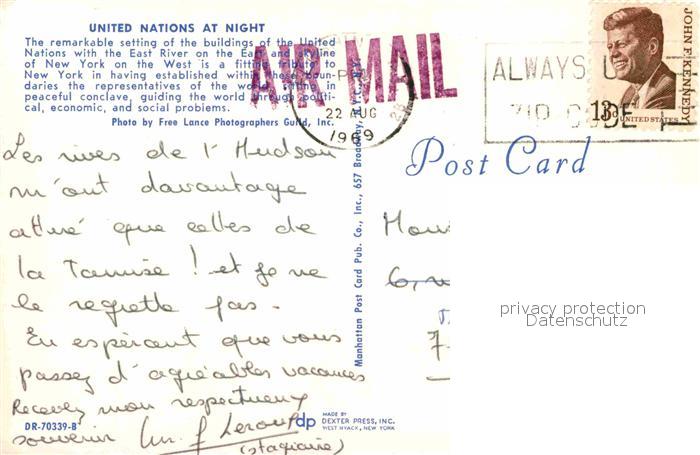 UNITED NATIONS AT NIGHT
The remarkable setting of the buildings of the United
Nations with the East River on the East and skyline
of New York on the West is a fitting tribute to
New York in having established within these boun-
daries the representatives of the world sitting in
peaceful conclave, guiding the world through politi-
cal, economic, and social problems.
Photo by Free Lance Photographers Guild, Inc.
AIR MAIL
PM
22 AUG
1969
ALWAYS U
ZIP CODE
JOHN F. KENNEDY
13c
UNITED STATES
Post Card
Les rives de l'Hudson
m'ont davantage
attiré que celles de
la Tamise ! et je ne
le regrette pas.
En espérant que vous
passez d'agréables vacances
Recevez mon respectueux
souvenir
Leroux
(stagiaire)
Manhattan Post Card Pub. Co., Inc., 657 Broadway, N.Y.C., N.Y.
6,
7
privacy protection
Datenschutz
DR-70339-B
dp
MADE BY
DEXTER PRESS, INC.
WEST NYACK, NEW YORK